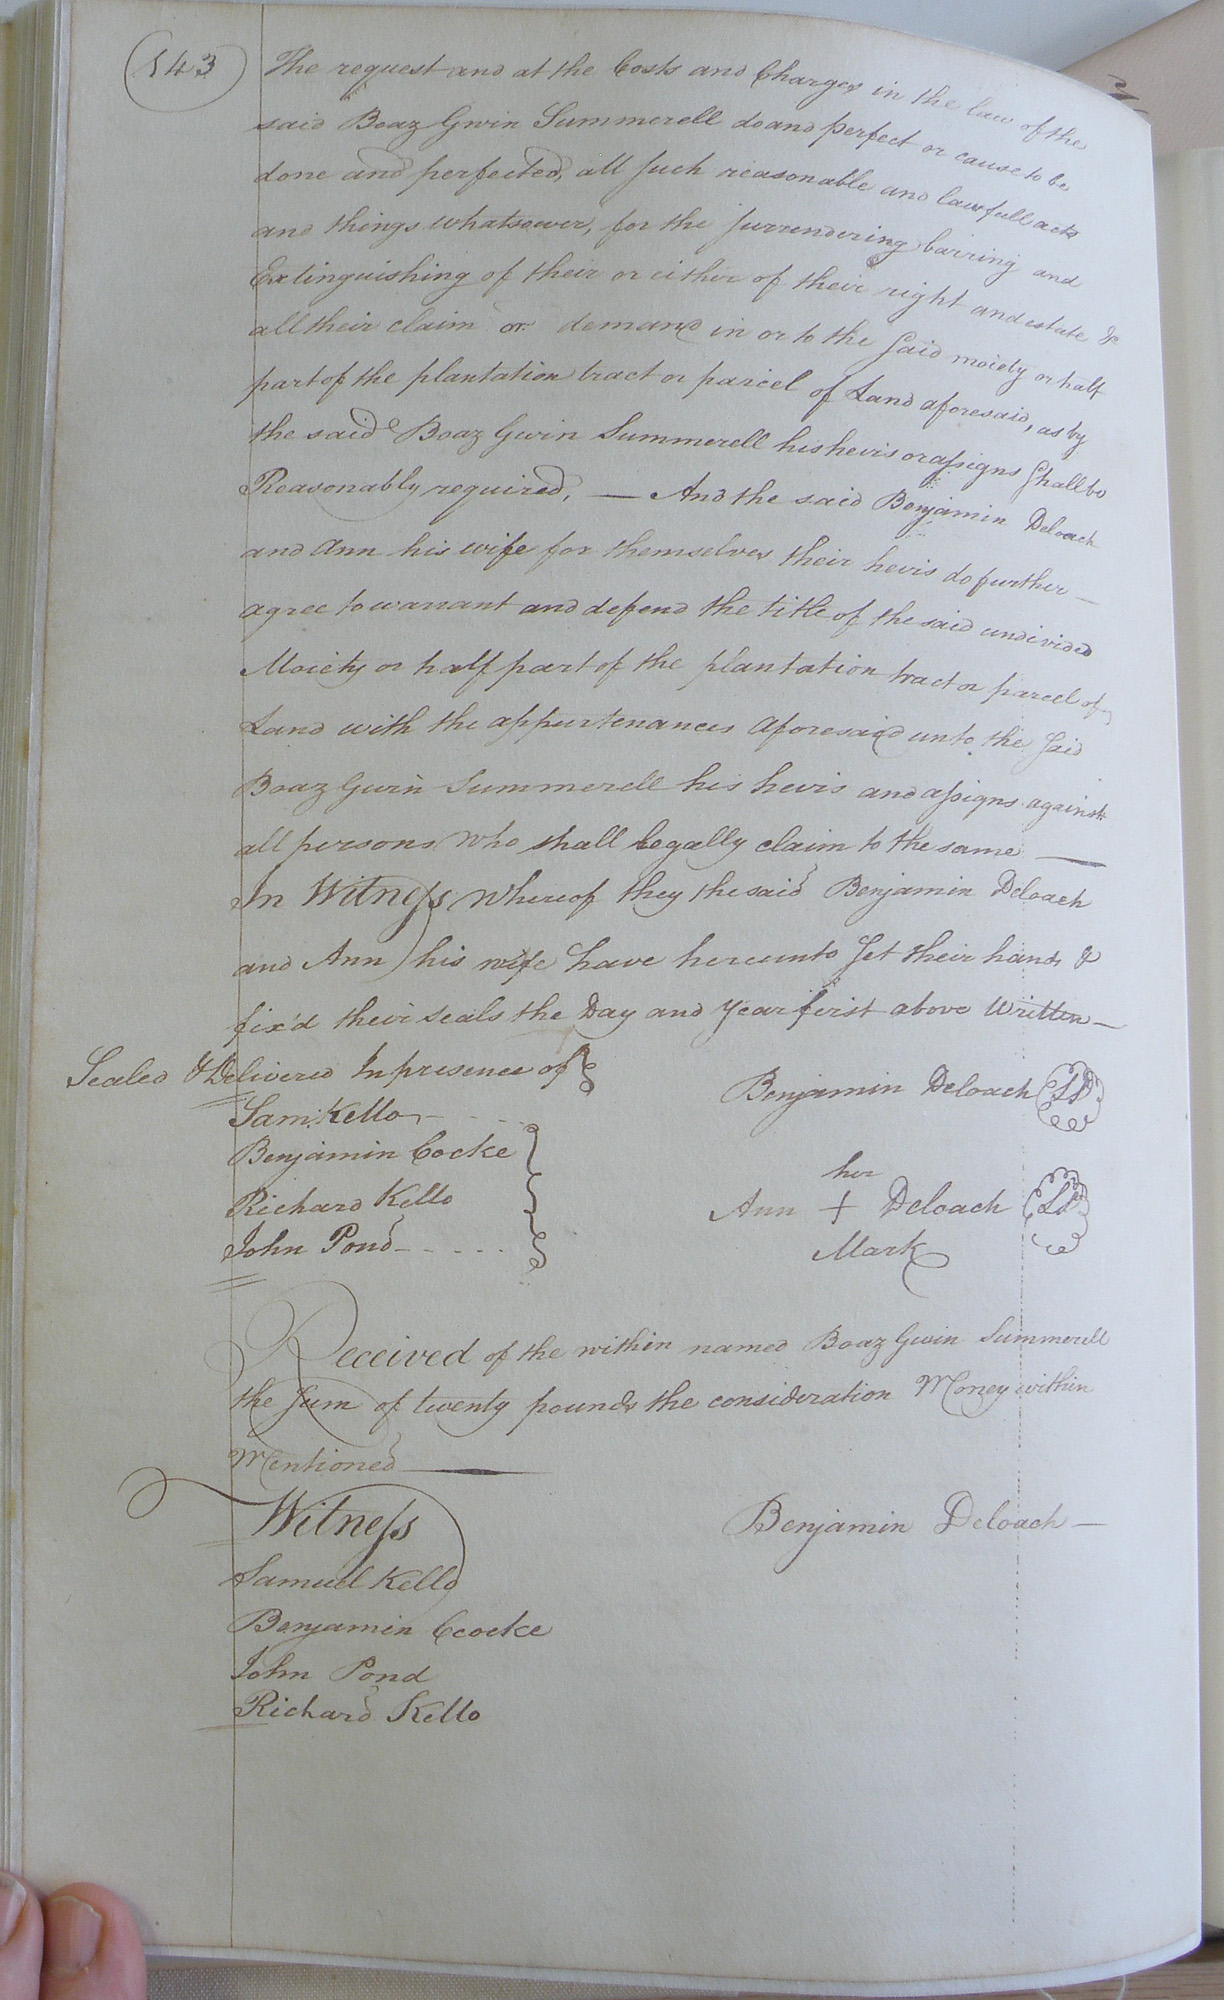 543
The request and at the Costs and Charges in the law of the
said Boaz Gwin Summerell do and perfect or cause to be
done and perfected, all such reasonable and lawfull acts
and things whatsoever, for the surrendering barring and
Extinguishing of their or either of their right and estate &
all their claim or demand in or to the said moiety or half
part of the plantation tract or parcel of Land aforesaid, as by
the said Boaz Gwin Summerell his heirs or assigns shall be
Reasonably required, — And the said Benjamin Deloach
and Ann his wife for themselves their heirs do further —
agree to warrant and defend the title of the said undivided
Moiety or half part of the plantation tract or parcel of
Land with the appurtenances aforesaid unto the said
Boaz Gwin Summerell his heirs and assigns against
all persons who shall legally claim to the same —
In Witness whereof they the said Benjamin Deloach
and Ann his wife have hereunto set their hands &
fix'd their seals the Day and Year first above Written —
Sealed & Delivered In presence of
Benjamin Deloach LS
Sam: Kello
Benjamin Cocke
Richard Kello
John Pond
her
Ann + Deloach LS
Mark
Received of the within named Boaz Gwin Summerell
the sum of twenty pounds the consideration Money within
Mentioned —
Witness
Benjamin Deloach —
Samuel Kello
Benjamin Ccocke
John Pond
Richard Kello